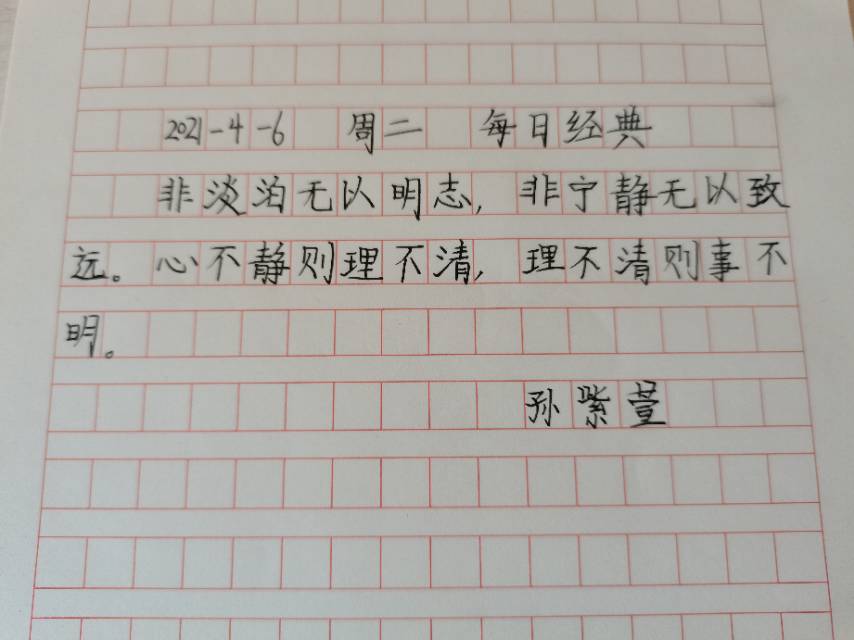 2021-4-6 周二 每日经典
非淡泊无以明志，非宁静无以致
远。心不静则理不清，理不清则事不
明。
孙紫萱